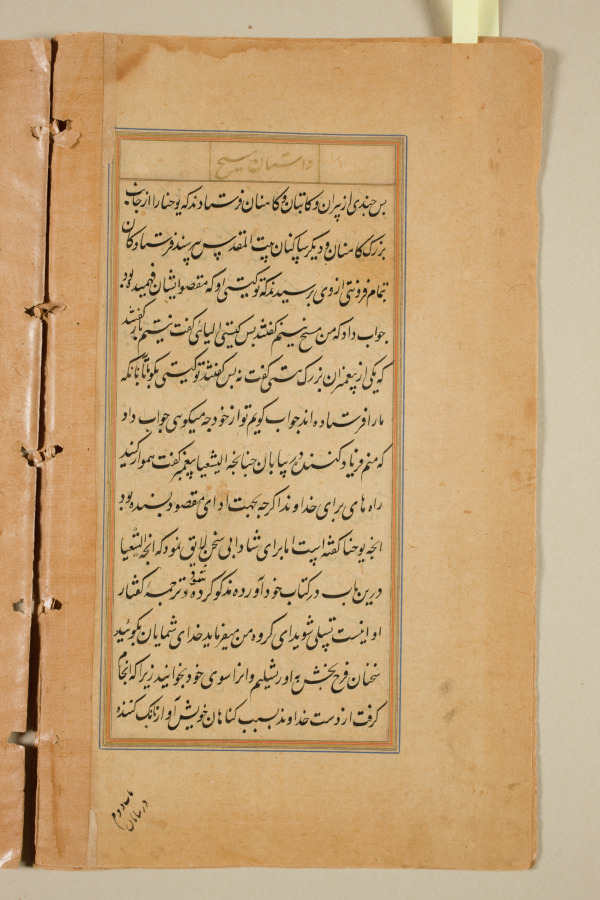 داستان مسیح
بس جندی از پیران و کاتبان و کاهنان فرستادند که یوحنا را از جانب
بزرک کاهنان و دیکر ساکنان بیت المقدس بپرسند فرستادکان
بتمام فروتنی از وی پرسیدند که تو کیستی او که مقصود ایشان فهمیده بود
جواب داد که من مسیح نیستم کفتند بس کیستی الیائی کفت نیستم باز کفتند
که یکی از پیغمبران بزرک هستی کفت نه بس کفتند تو کیستی بکو تا بآنانکه
مارا فرستاده اند جواب کویم تو از خود جه میکوئی جواب داد
که منم فریاد کننده در بیابان جنانجه الیشعیا پیغمبر کفت هموار کنید
راه های برای خداوند اکرجه بجهت ادای مقصود بسنده بود
انجه یوحنا کفته است اما برای شادابی سخن لایق نمود که انجه الیشعیا
درین باب در کتاب خود آورده مذکور کرده و ترجمهٔ کفتار
او اینست تسلی شوید ای کروه من میفرماید خدای شمایان بکوئید
سخنان فرح بخش به اورشلیم و انرا سوی خود بخوانید زیرا که انجام
کرفت از دست خداوند بسبب کناهان خویش آواز بانک کننده
در بیابان